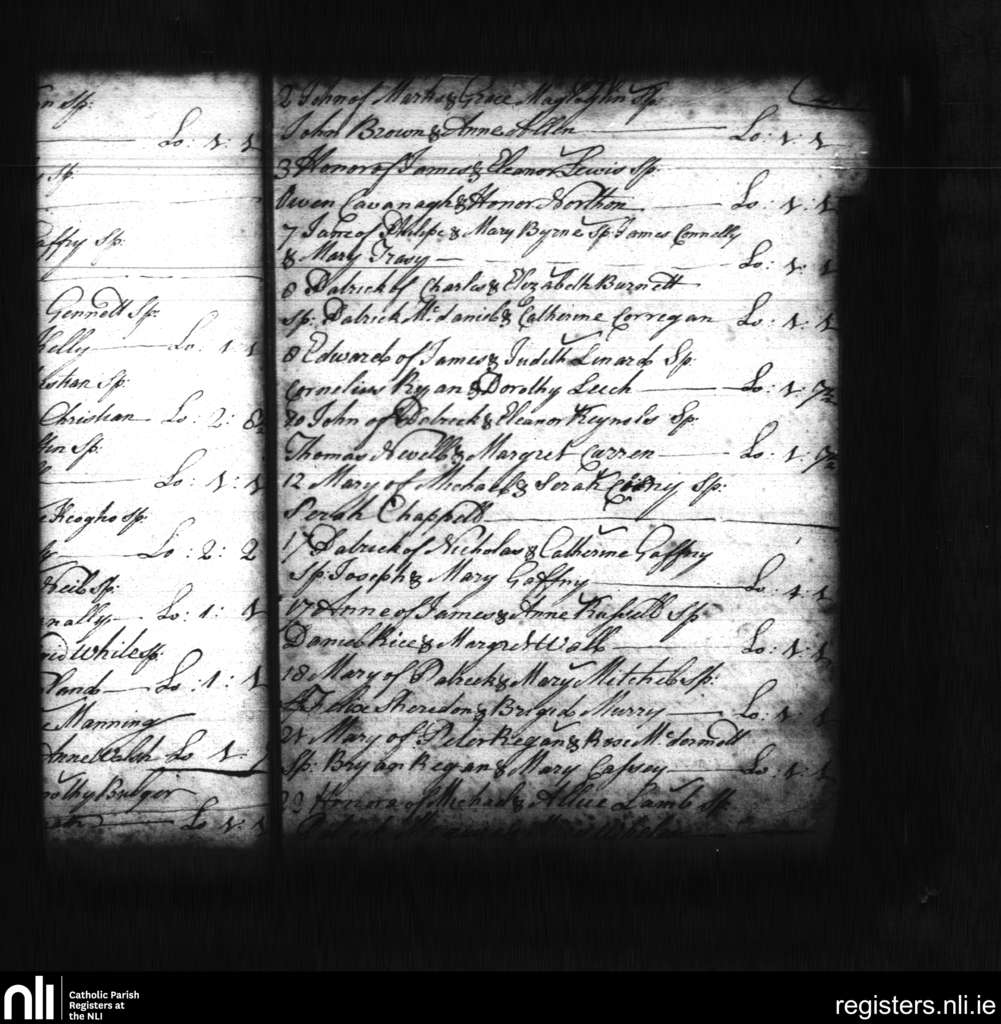 Sp:
Lo: 1: 1
Sp:
Gaffry Sp:
Gennett Sp:
Kelly Lo: 1 1
Christian Sp:
Christian Lo: 2: 8½
Sp:
Lo: 1: 1
Keogho Sp:
Lo: 2: 2
Neil Sp:
Lo: 1: 1
White Sp:
Lo: 1: 1
Manning
Anne Walsh Lo 1
Bulger
Lo 1: 1
2 John of Marks & Grace Maglaghlin Sp
John Brown & Anne Allen Lo: 1: 1
3 Honor of James & Eleanor Lewis Sp:
Owen Cavanagh & Honor Northon Lo: 1: 1
7 Jane of Philipe & Mary Byrne Sp James Connelly
& Mary Trasy Lo: 1: 1
8 Patrick of Charles & Elizabeth Burnett
Sp: Patrick Mcdaniel & Catherine Corrigan Lo: 1: 1
8 Edward of James & Judith Linard Sp:
Cornelius Ryan & Dorothy Leech Lo: 1: 7½
10 John of Patrick & Eleanor Reynols Sp:
Thomas Newell & Margret Curren Lo: 1: 7½
12 Mary of Michael & Serah Sp:
Serah Chappell
17 Patrick of Nicholas & Catherine Gaffny
Sp: Joseph & Mary Gaffny Lo: 1 1
17 Anne of James & Anne Rassell Sp
Daniel Rice & Margret Wall Lo: 1: 1
18 Mary of Patrick & Mary Mitchel Sp:
Felix Sheredon & Brigid Murry Lo: 1: 1
21 Mary of Peter Regan & Rose Mcdermott
Sp: Bryan Regan & Mary Cassey Lo: 1: 1
23 Honora of Michael & Allice Lamb Sp:
nli
Catholic Parish
Registers at
the NLI
registers.nli.ie